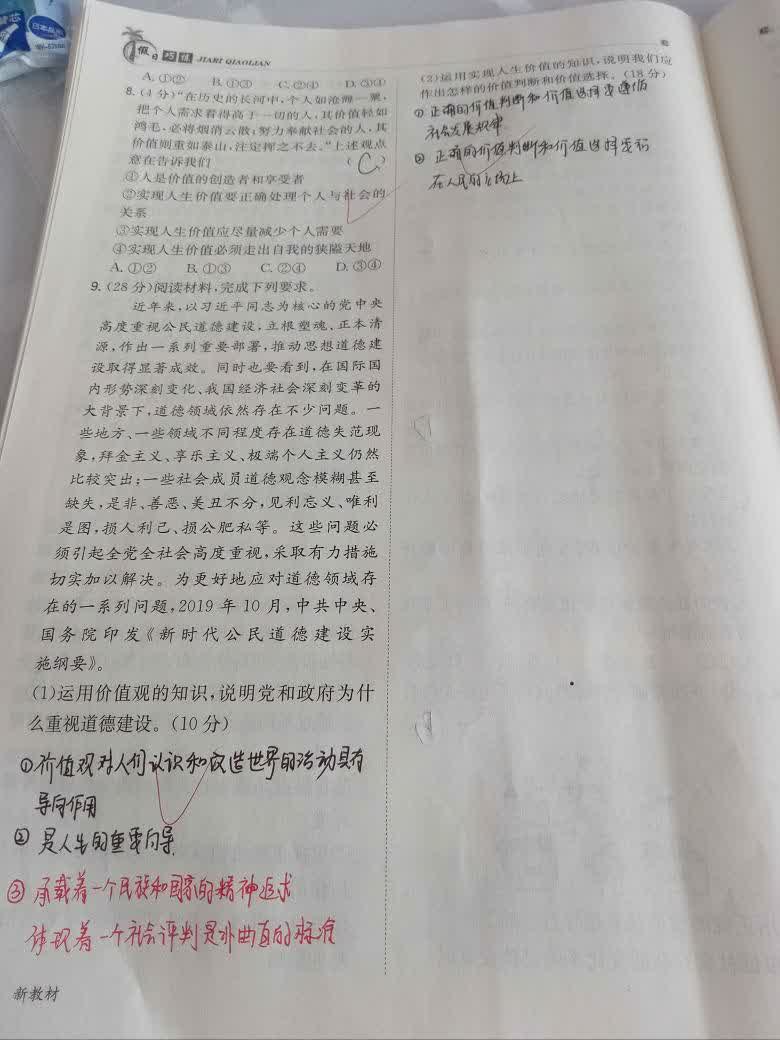 日本品质
假日巧练 JIARI QIAOLIAN
A. ①② B. ①③ C. ②④ D. ③④
8. (4 分)“在历史的长河中,个人如沧海一粟,
把个人需求看得高于一切的人,其价值轻如
鸿毛,必将烟消云散;努力奉献社会的人,其
价值则重如泰山,注定挥之不去。”上述观点
意在告诉我们 ( C )
①人是价值的创造者和享受者
②实现人生价值要正确处理个人与社会的
关系
③实现人生价值应尽量减少个人需要
④实现人生价值必须走出自我的狭隘天地
A. ①② B. ①③ C. ②④ D. ③④
9. (28 分)阅读材料,完成下列要求。
近年来,以习近平同志为核心的党中央
高度重视公民道德建设,立根塑魂、正本清
源,作出一系列重要部署,推动思想道德建
设取得显著成效。同时也要看到,在国际国
内形势深刻变化、我国经济社会深刻变革的
大背景下,道德领域依然存在不少问题。一
些地方、一些领域不同程度存在道德失范现
象,拜金主义、享乐主义、极端个人主义仍然
比较突出;一些社会成员道德观念模糊甚至
缺失,是非、善恶、美丑不分,见利忘义、唯利
是图,损人利己、损公肥私等。这些问题必
须引起全党全社会高度重视,采取有力措施
切实加以解决。为更好地应对道德领域存
在的一系列问题,2019 年 10 月,中共中央、
国务院印发《新时代公民道德建设实
施纲要》。
(1)运用价值观的知识,说明党和政府为什
么重视道德建设。(10 分)
①价值观对人们认识和改造世界的活动具有
导向作用
② 是人生的重要向导.
③ 承载着一个民族和国家的精神追求
体现着一个社会评判是非曲直的标准
新教材
(2)运用实现人生价值的知识,说明我们应
作出怎样的价值判断和价值选择。(18 分)
① 正确的价值判断和价值选择要遵循
社会发展规律
② 正确的价值判断和价值选择要站
在人民的立场上